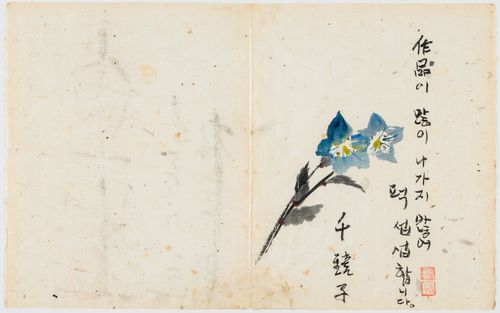 作品이 많이 나가지 않아
퍽 섭섭합니다。
千鏡子